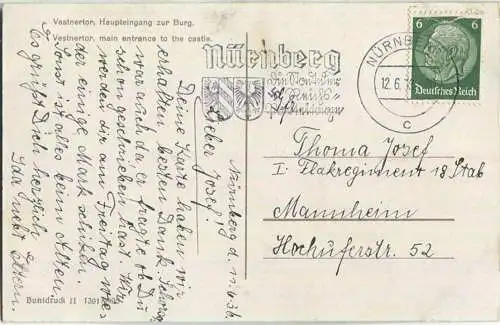 Vestnertor, Haupteingang zur Burg.
Vestnertor, main entrance to the castle.
Nürnberg
die Stadt der
Reichs-
parteitage
NÜRNB
12.6.3
c
6 6
Deutsches Reich
Nürnberg d.
Lieber Josef!
Deine Karte haben wir
erhalten besten Dank.
war auch da er fragte ob Du
schon geschrieben hast. Wir
werden dir am Freitag wie-
der einige Mark schicken.
Sonst ist alles beim Alten,
Es grüßt Dich herzlich
Ida nebst Eltern.
Thoma Josef
I. Flakregiment 18 Stab
Mannheim
Hochuferstr. 52
Buntdruck II